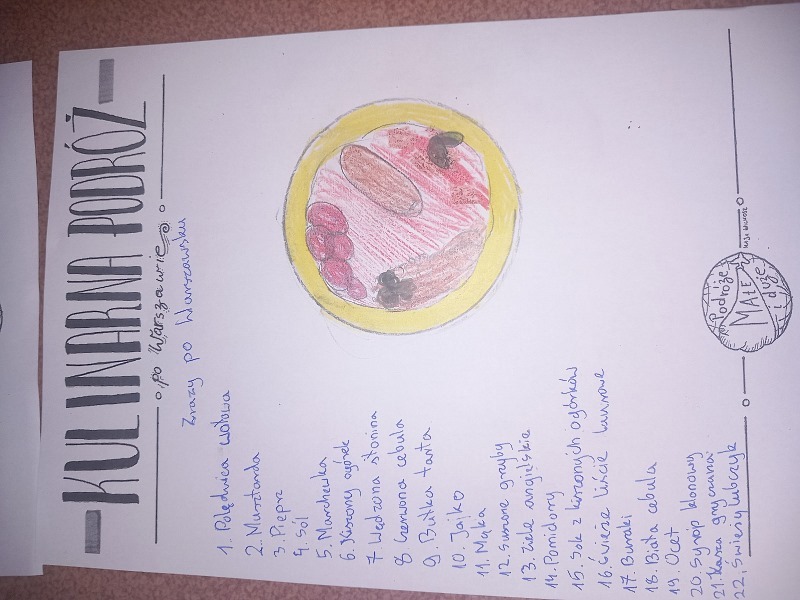 KULINARNA PODRÓŻ
po Warszawie
Zrazy po Warszawsku
1. Polędwica wołowa
2. Musztarda
3. Pieprz
4. Sól
5. Marchewka
6. Kiszony ogórek
7. Wędzona słonina
8. Czerwona cebula
9. Bułka tarta
10. Jajko
11. Mąka
12. Suszone grzyby
13. Ziele angielskie
14. Pomidory
15. Sok z kiszonych ogórków
16. Świeże liście laurowe
17. Buraki
18. Biała cebula
19. Ocet
20. Syrop klonowy
21. Kasza gryczana
22. Świeży lubczyk
Podróże
MAŁE
i duże